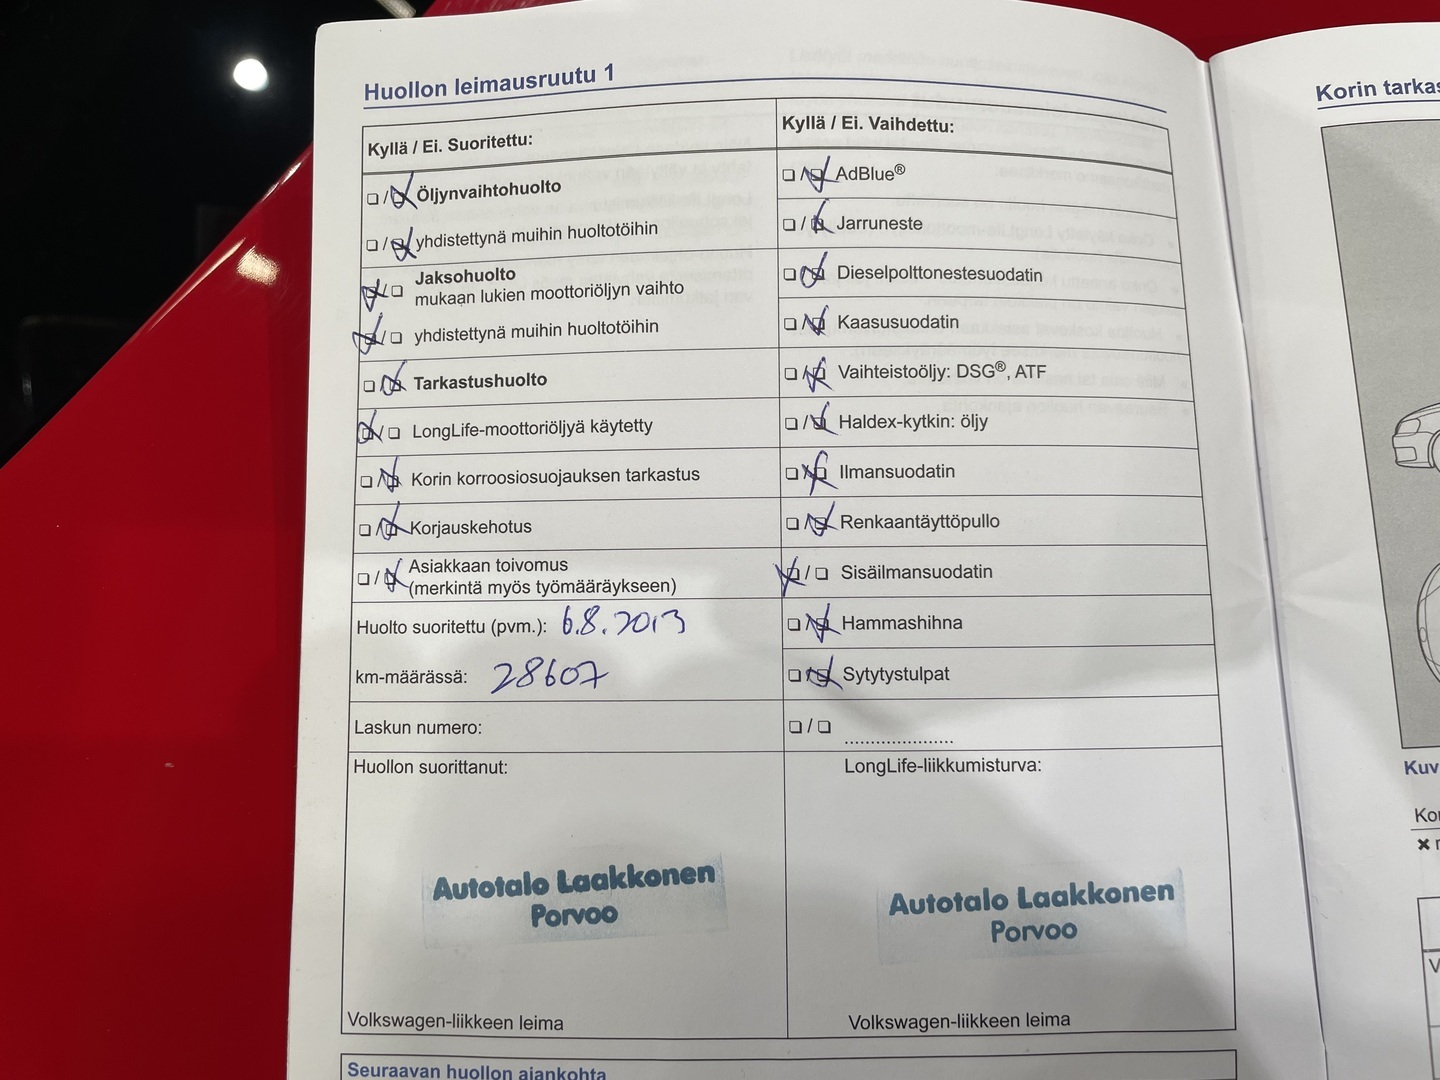 Huollon leimausruutu 1
Kyllä / Ei. Suoritettu:
Öljynvaihtohuolto
yhdistettynä muihin huoltotöihin
Jaksohuolto
mukaan lukien moottoriöljyn vaihto
yhdistettynä muihin huoltotöihin
Tarkastushuolto
LongLife-moottoriöljyä käytetty
Korin korroosiosuojauksen tarkastus
Korjauskehotus
Asiakkaan toivomus
(merkintä myös työmääräykseen)
Huolto suoritettu (pvm.): 6.8.2013
km-määrässä: 28607
Laskun numero:
Huollon suorittanut:
Autotalo Laakkonen
Porvoo
Volkswagen-liikkeen leima
Kyllä / Ei. Vaihdettu:
AdBlue®
Jarruneste
Dieselpolttonestesuodatin
Kaasusuodatin
Vaihteistoöljy: DSG®, ATF
Haldex-kytkin: öljy
Ilmansuodatin
Renkaantäyttöpullo
Sisäilmansuodatin
Hammashihna
Sytytystulpat
LongLife-liikkumisturva:
Autotalo Laakkonen
Porvoo
Volkswagen-liikkeen leima
Seuraavan huollon ajankohta
Korin tarkas
Kuv
Kor